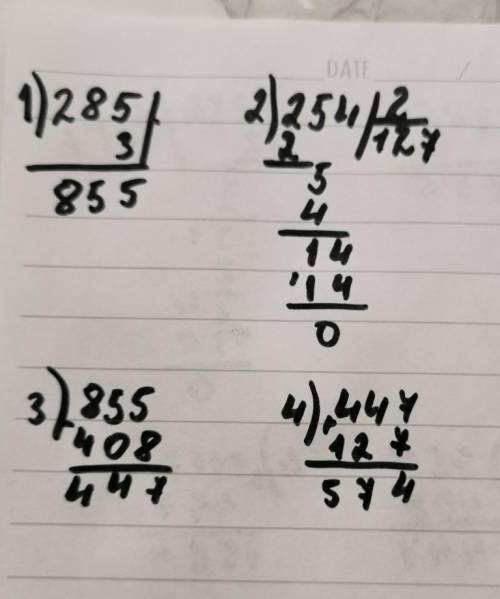 DATE
1) 285
3
855
2) 254 | 2
127
2
5
4
14
14
0
3) 855
408
447
4) 447
127
574